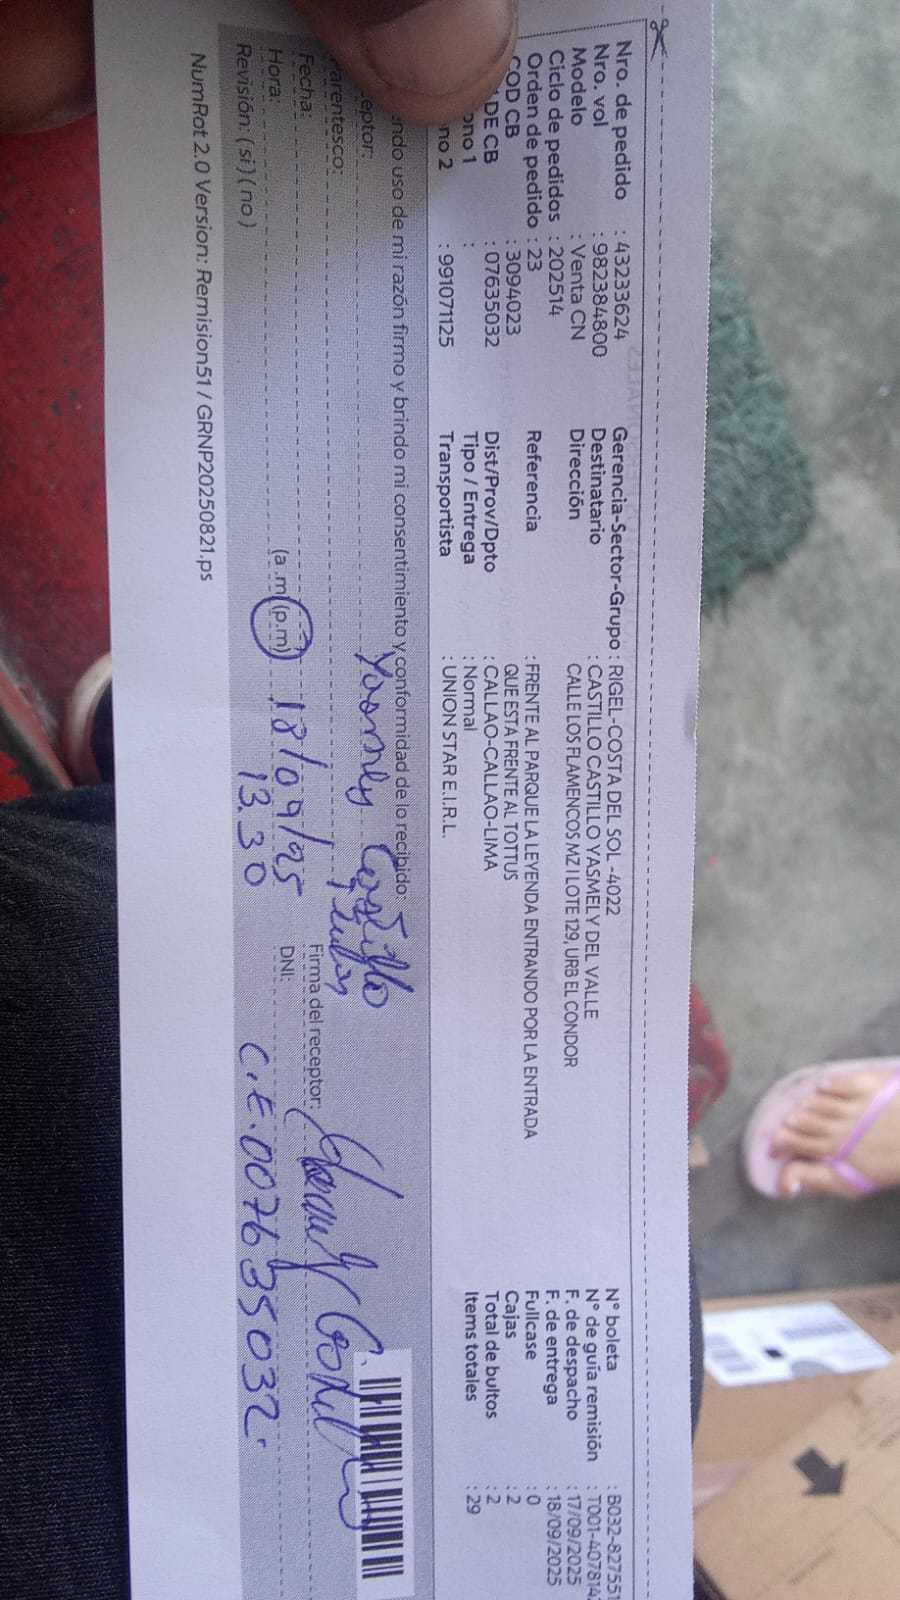 Nro. de pedido : 43233624
Nro. vol : 982384800
Modelo : Venta CN
Ciclo de pedidos : 202514
Orden de pedido : 23
COD CB : 3094023
DE CB : 07635032
ono 1 :
no 2 : 991071125
Gerencia-Sector-Grupo : RIGEL-COSTA DEL SOL -4022
Destinatario : CASTILLO CASTILLO YASMELY DEL VALLE
Dirección CALLE LOS FLAMENCOS MZ I LOTE 129, URB EL CONDOR
Referencia : FRENTE AL PARQUE LA LEYENDA ENTRANDO POR LA ENTRADA
QUE ESTA FRENTE AL TOTTUS
Dist/Prov/Dpto : CALLAO-CALLAO-LIMA
Tipo / Entrega : Normal
Transportista : UNION STAR E.I.R.L.
N° boleta : B032-827551
N° de guía remisión : T001-4078142
F. de despacho : 17/09/2025
F. de entrega : 18/09/2025
Fullcase : 0
Cajas : 2
Total de bultos : 2
Items totales : 29
ndo uso de mi razón firmo y brindo mi consentimiento y conformidad de lo recibido:
eptor: Castillo
arentesco: Firma del receptor:
Fecha: 18/09/25
Hora: (a.m) (p.m) 13.30 DNI: C.E.007635032
Revisión: (si) (no)
NumRot 2.0 Version: Remision51 / GRNP20250821.ps